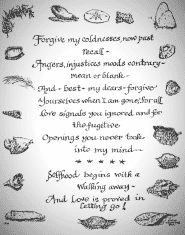 Forgive my coldnesses, now past
recall -
Angers, injustices moods contrary-
mean or blank-
And - best - my dears - forgive
Yourselves when I am gone, for all
love signals you ignored and for
the fugitive
Openings you never took
into my mind --
* * * * *
Selfhood begins with a
walking away -
And Love is proved in
letting go!